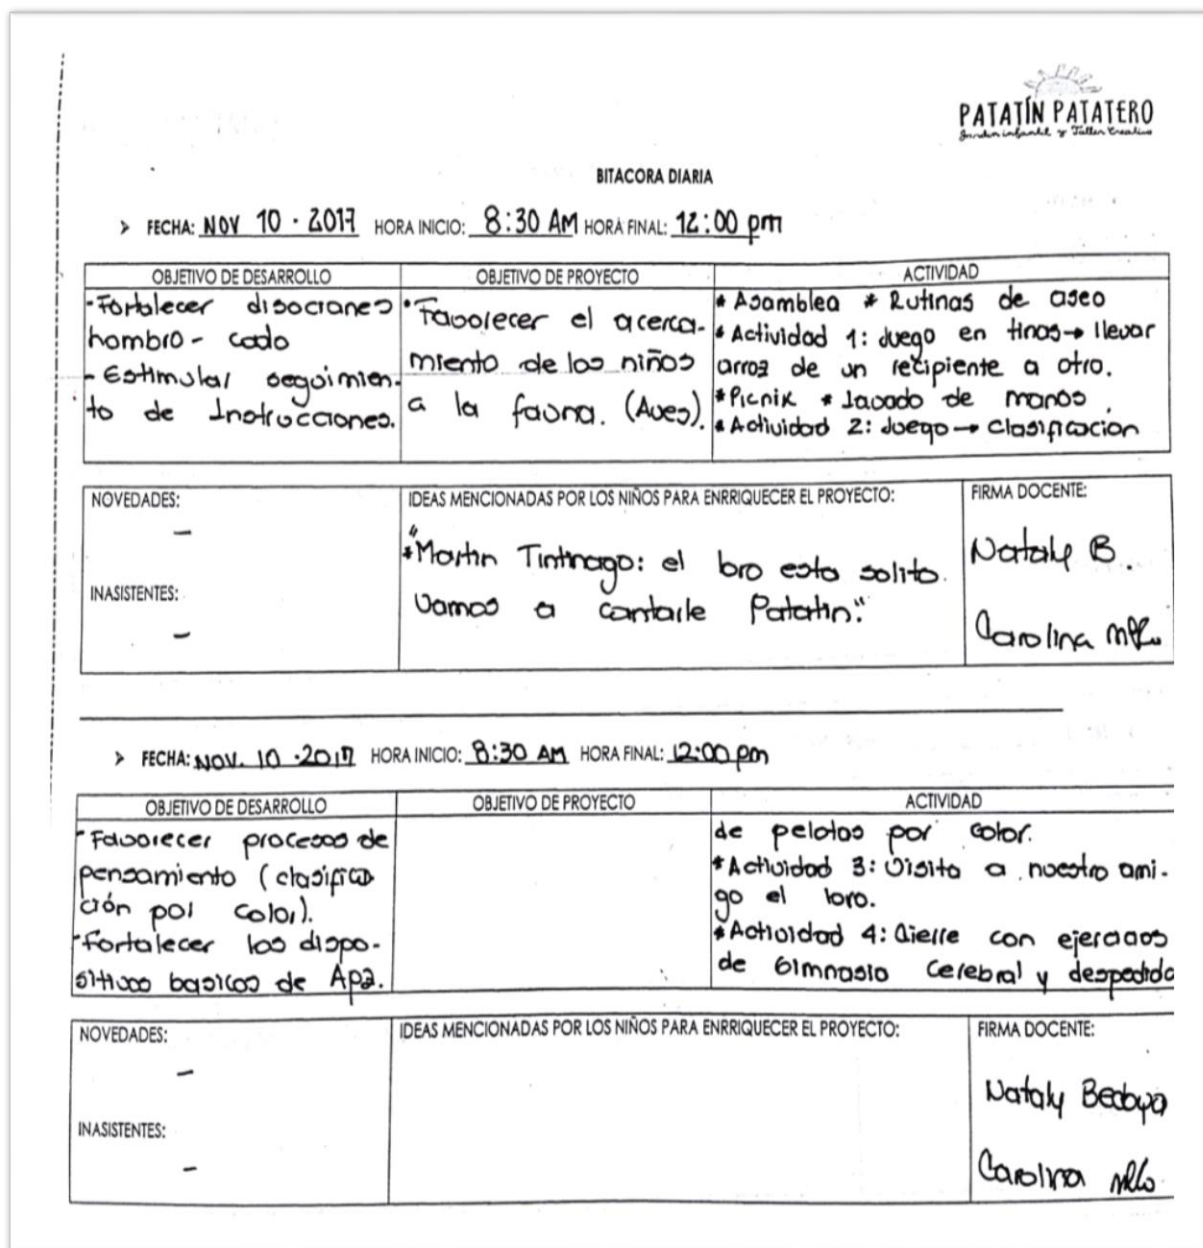 PATATÍN PATATERO
Jardín infantil y Taller Creativo
BITACORA DIARIA
> FECHA: NOV 10 · 2017 HORA INICIO: 8:30 AM HORA FINAL: 12:00 pm
OBJETIVO DE DESARROLLO
- Fortalecer disociones
hombro - codo
- Estimular seguimien-
to de Instrucciones.
OBJETIVO DE PROYECTO
• Favorecer el acerca-
miento de los niños
a la fauna. (Aves).
ACTIVIDAD
* Asamblea * Rutinas de aseo
* Actividad 1: Juego en tinas → llevar
arroz de un recipiente a otro.
* Picnik * Lavado de manos.
* Actividad 2: Juego → Clasificacion
NOVEDADES:
-
INASISTENTES:
-
IDEAS MENCIONADAS POR LOS NIÑOS PARA ENRRIQUECER EL PROYECTO:
"
*Martin Tintinago: el loro esta solito.
Vamos a cantarle Patatin."
FIRMA DOCENTE:
Nataly B.
Carolina
> FECHA: NOV. 10 · 2017 HORA INICIO: 8:30 AM HORA FINAL: 12:00 pm
OBJETIVO DE DESARROLLO
- Favorecer procesos de
pensamiento (clasifica
ción por color).
- Fortalecer los dispo-
sitivos basicos de Apa.
OBJETIVO DE PROYECTO
ACTIVIDAD
de pelotas por color.
* Actividad 3: Visita a nuestro ami-
go el loro.
* Actividad 4: Cierre con ejercicios
de Gimnasio Cerebral y despedida
NOVEDADES:
-
INASISTENTES:
-
IDEAS MENCIONADAS POR LOS NIÑOS PARA ENRRIQUECER EL PROYECTO:
FIRMA DOCENTE:
Nataly Bedoya
Carolina